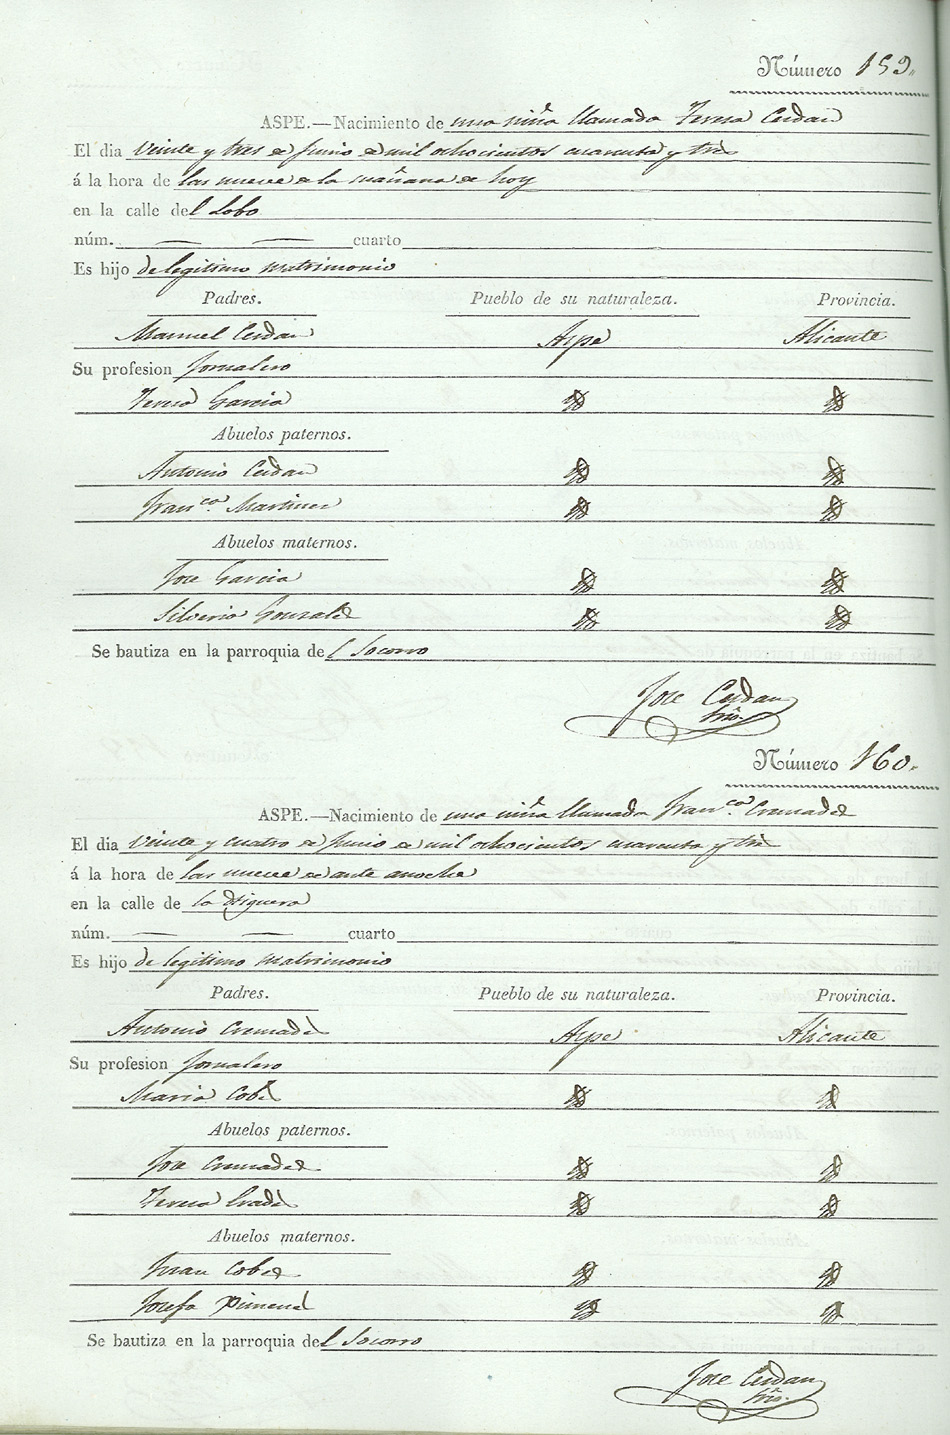 Número 159.
ASPE.—Nacimiento de una niña llamada Teresa Cerdan
El dia veinte y tres de Junio de mil ochocientos cuarenta y tres
á la hora de las nueve de la mañana de hoy
en la calle del Lobo
núm. — — cuarto
Es hijo de legitimo matrimonio
Padres. Pueblo de su naturaleza. Provincia.
Manuel Cerdan Aspe Alicante
Su profesion Jornalero
Teresa Garcia
Abuelos paternos.
Antonio Cerdan
Franca. Martinez
Abuelos maternos.
Jose Garcia
Silveria Gonzalez
Se bautiza en la parroquia del Socorro
Jose Cerdan
Número 160.
ASPE.—Nacimiento de una niña llamada Franca. Cremades
El dia veinte y cuatro de Junio de mil ochocientos cuarenta y tres
á la hora de las nueve de ante anoche
en la calle de la Higuera
núm. — — cuarto
Es hijo de legitimo matrimonio
Padres. Pueblo de su naturaleza. Provincia.
Antonio Cremades Aspe Alicante
Su profesion Jornalero
Maria Cobes
Abuelos paternos.
Jose Cremades
Teresa
Abuelos maternos.
Juan Cobes
Josefa Pimenel
Se bautiza en la parroquia del Socorro
Jose Cerdan